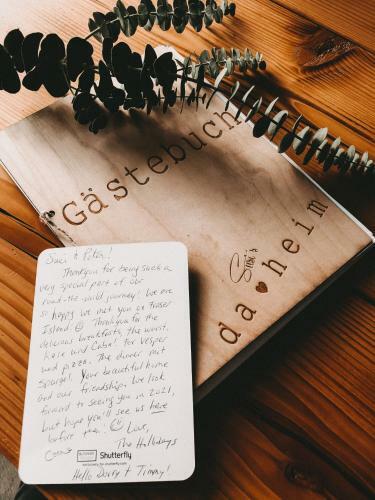 Gästebuch
Susi's
da heim
Susi & Peter!
Thank you for being such a
very special part of our
round-the-world journey! We are
so happy we met you on Fraser
Island! Thank you for the
delicious breakfasts, the wurst,
käse und for Vesper
und pizza. The dinner mit
Spargel. Your beautiful home
and our friendship. We look
forward to seeing you in 2021,
but hope you'll see us here
before then! Love,
The Hallidays
Shutterfly
Hello &